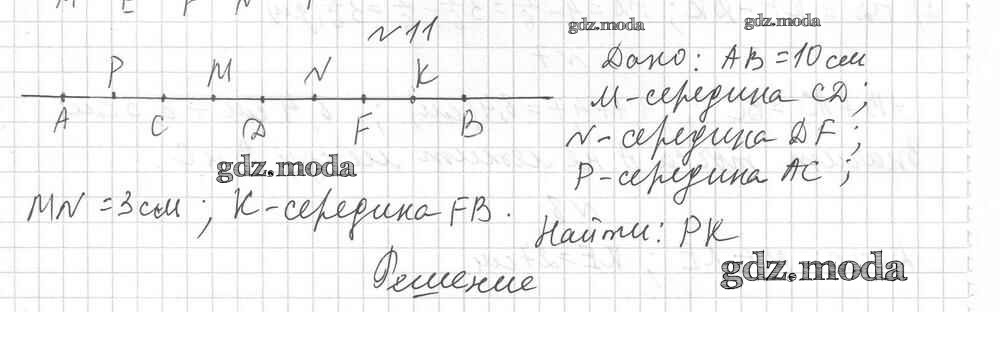 M E F N
№11
gdz.moda
gdz.moda
Дано: AB = 10 см
P M N K
M - середина CD;
A C D F B
N - середина DF;
gdz.moda
P - середина AC;
MN = 3 см; K - середина FB.
Найти: PK
gdz.moda
Решение